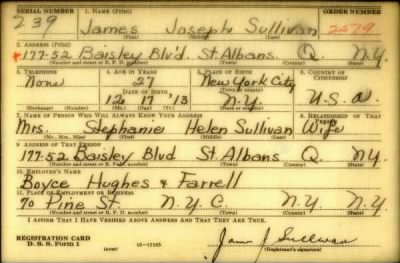 SERIAL NUMBER 1. NAME (Print) ORDER NUMBER
239 James Joseph Sullivan 2579
(First) (Middle) (Last)
2. ADDRESS (Print)
177-52 Baisley Blv'd. St Albans Q. N.Y.
(Number and street or R. F. D. number) (Town) (County) (State)
3. TELEPHONE 4. AGE IN YEARS 5. PLACE OF BIRTH 6. COUNTRY OF CITIZENSHIP
None 27 New York City
DATE OF BIRTH (Town or county)
12 17 '13 N.Y. U.S.A.
(Exchange) (Number) (Mo.) (Day) (Yr.) (State or country)
7. NAME OF PERSON WHO WILL ALWAYS KNOW YOUR ADDRESS 8. RELATIONSHIP OF THAT PERSON
Mrs. Stephanie Helen Sullivan Wife
(Mr., Mrs., Miss) (First) (Middle) (Last)
9. ADDRESS OF THAT PERSON
177-52 Baisley Blvd St Albans Q. N.Y.
(Number and street or R. F. D. number) (Town) (County) (State)
10. EMPLOYER'S NAME
Boyce Hughes & Farrell
11. PLACE OF EMPLOYMENT OR BUSINESS
70 Pine St. N.Y.C. N.Y. N.Y.
(Number and street or R. F. D. number) (Town) (County) (State)
I AFFIRM THAT I HAVE VERIFIED ABOVE ANSWERS AND THAT THEY ARE TRUE.
REGISTRATION CARD
D. S. S. Form 1 (over) James J. Sullivan
(Registrant's signature)